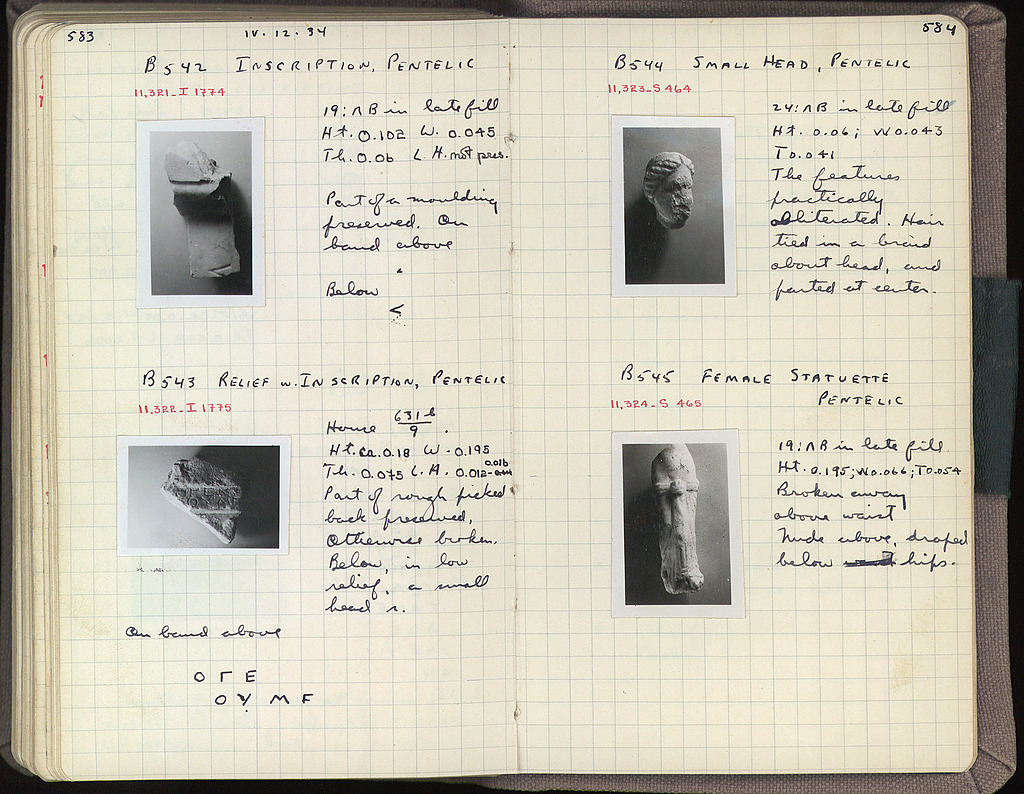 583
IV. 12. 34
B 542 INSCRIPTION, PENTELIC
11,321_I 1774
19: ΛB in late fill
Ht. 0.102 W. 0.045
Th. 0.06 L.H. not pres.
Part of a moulding
preserved. On
band above
Below
<
B 543 RELIEF w. INSCRIPTION, PENTELIC
11,322_I 1775
House 631b/9.
Ht. ca. 0.18 W - 0.195
Th. 0.075 L.H. 0.012-0.016
Part of rough picked
back preserved,
Otherwise broken.
Below, in low
relief, a small
head r.
On band above
Ο Γ Ε
Ο Υ Μ F
584
B 544 SMALL HEAD, PENTELIC
11,323_S 464
24: ΛB in late fill
Ht. 0.06; W 0.043
T 0.041
The features
practically
obliterated. Hair
tied in a braid
about head, and
parted at center.
B 545 FEMALE STATUETTE
PENTELIC
11,324_S 465
19: ΛB in late fill
Ht. 0.195; W 0.066; T 0.054
Broken away
above waist
Nude above, draped
below hips.